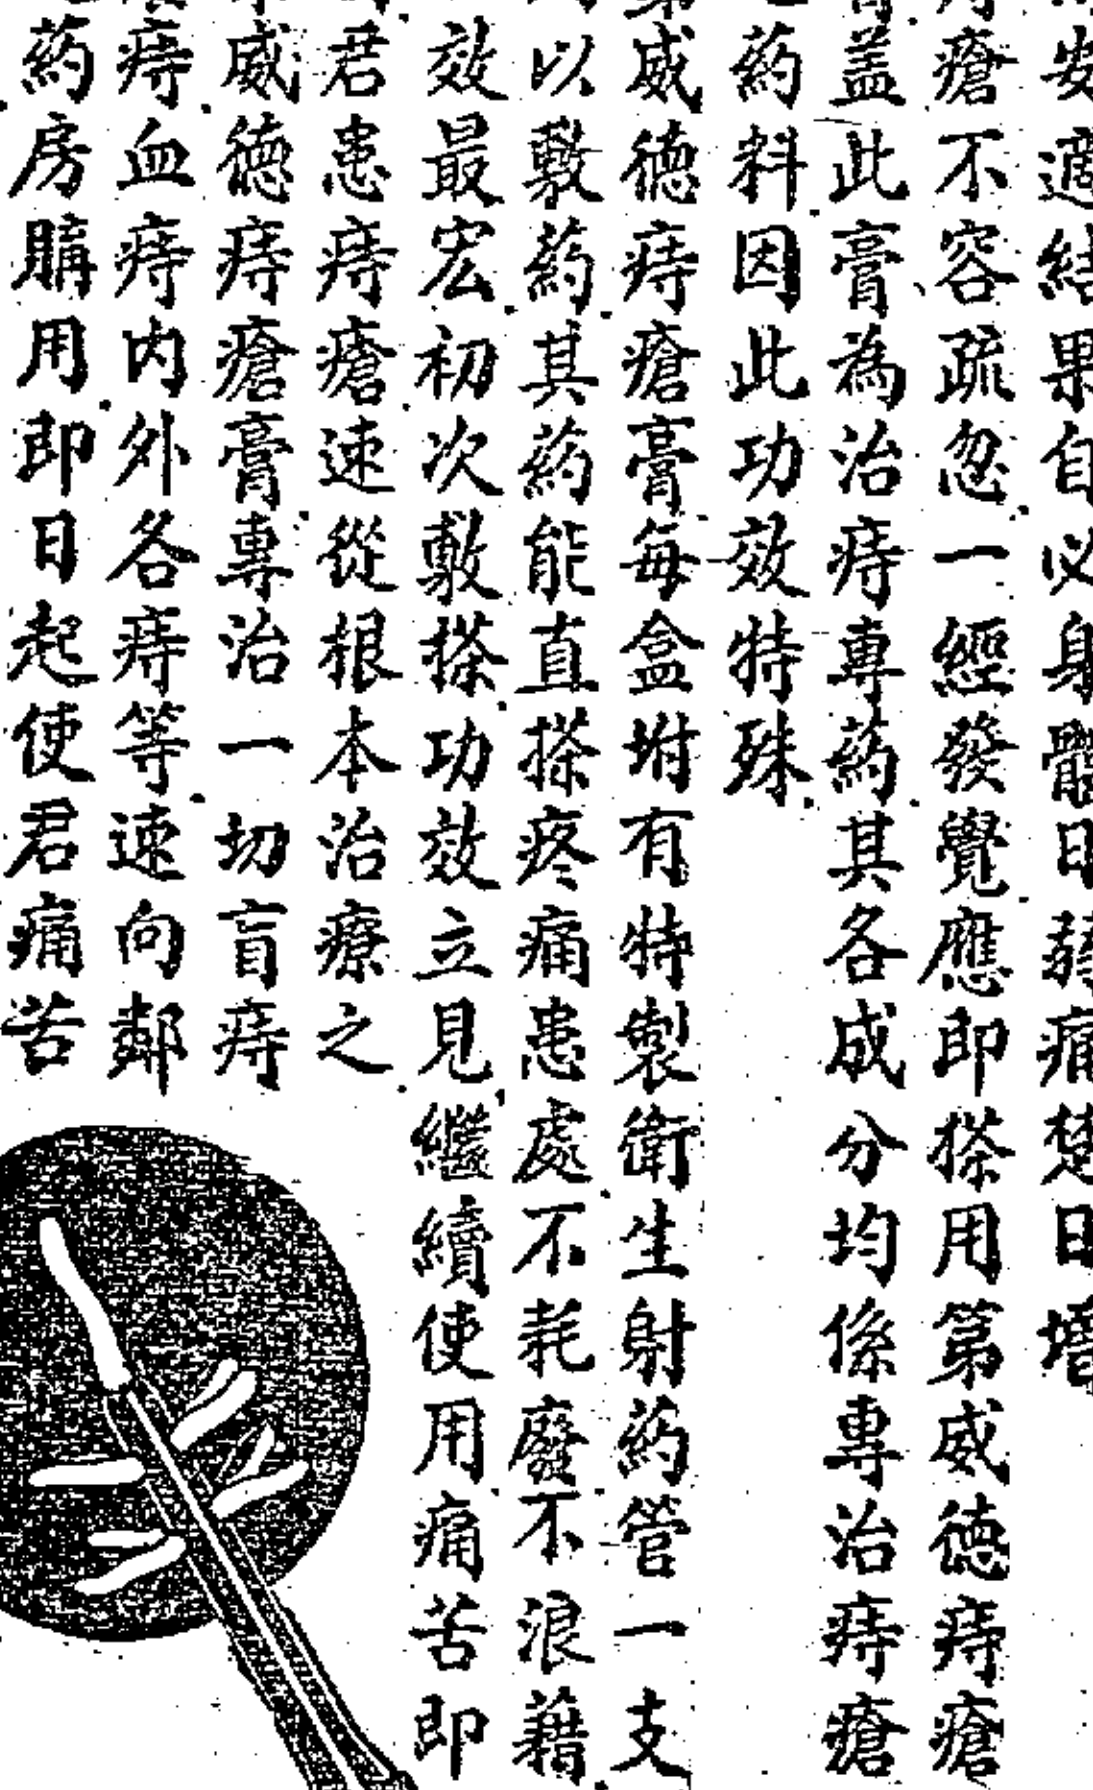 安適結果自必身體日弱痛楚日增
痔瘡不容疏忽一經發覺應即搽用第威德痔瘡
膏蓋此膏為治痔專葯其各成分均係專治痔瘡
葯料因此功效特殊
第威德痔瘡膏每盒坿有特製衛生射葯管一支
以敷葯其葯能直搽疼痛患處不耗廢不浪藉
效最宏初次敷搽功效立見繼續使用痛苦即
君患痔瘡速從根本治療之
威德痔瘡膏專治一切盲痔
痔血痔内外各痔等速向鄰
葯房購用即日起使君痛苦